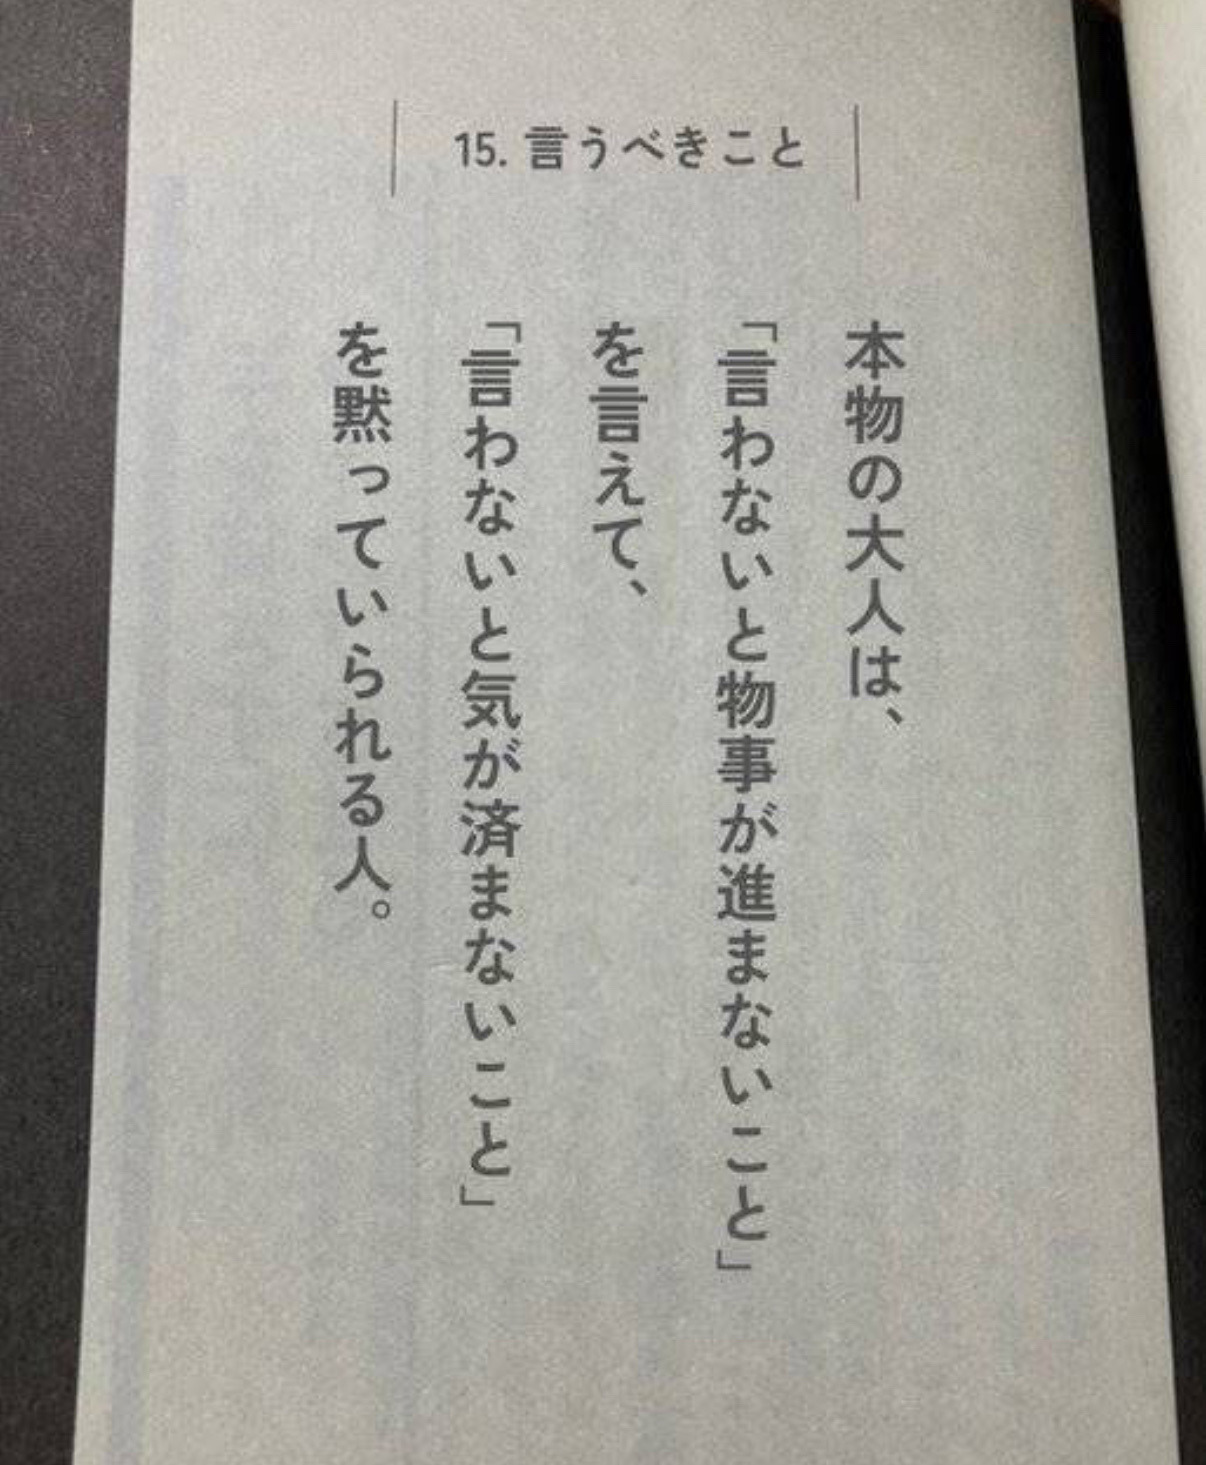 15. 言うべきこと
本物の大人は、
「言わないと物事が進まないこと」
を言えて、
「言わないと気が済まないこと」
を黙っていられる人。